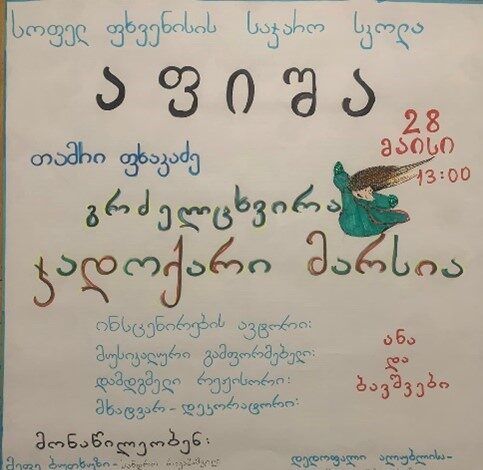 სოფელ ფხვენისის საჯარო სკოლა
აფიშა
28
მაისი
13:00
თამრი ფხაკაძე
გრძელცხვირა
ჯადოქარი მარსია
ინსცენირების ავტორი:
მუსიკალური გამფორმებელი:
დამდგმელი რეჟისორი:
მხატვარ-დეკორატორი:
ანა
და
ბავშვები
მონაწილეობენ:
მეფე ბუთხუზი-
დედოფალი ალუბლისა-